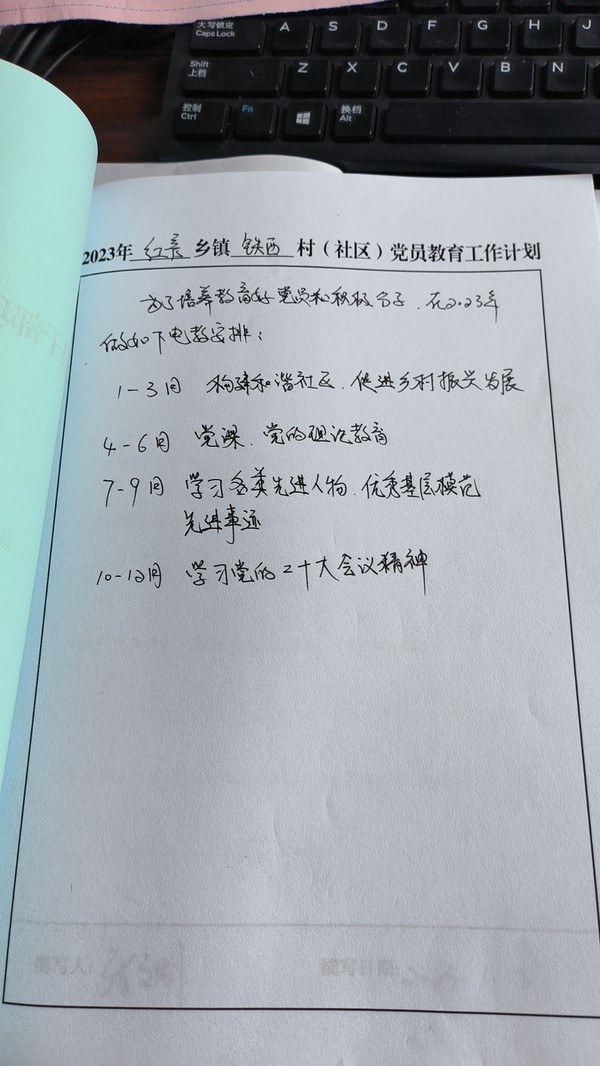 大写锁定
Caps Lock
A S D F G H J
Shift
上档
Z X C V B N
控制
Ctrl
Fn
换档
Alt
2023年 红旗 乡镇 铁西 村（社区）党员教育工作计划
为了培养教育好党员和积极分子，在2023年
做如下电教安排：
1-3月 构建和谐社区、促进乡村振兴发展
4-6月 党课、党的理论教育
7-9月 学习各类先进人物、优秀基层模范
先进事迹
10-12月 学习党的二十大会议精神
填写人：
填写日期：